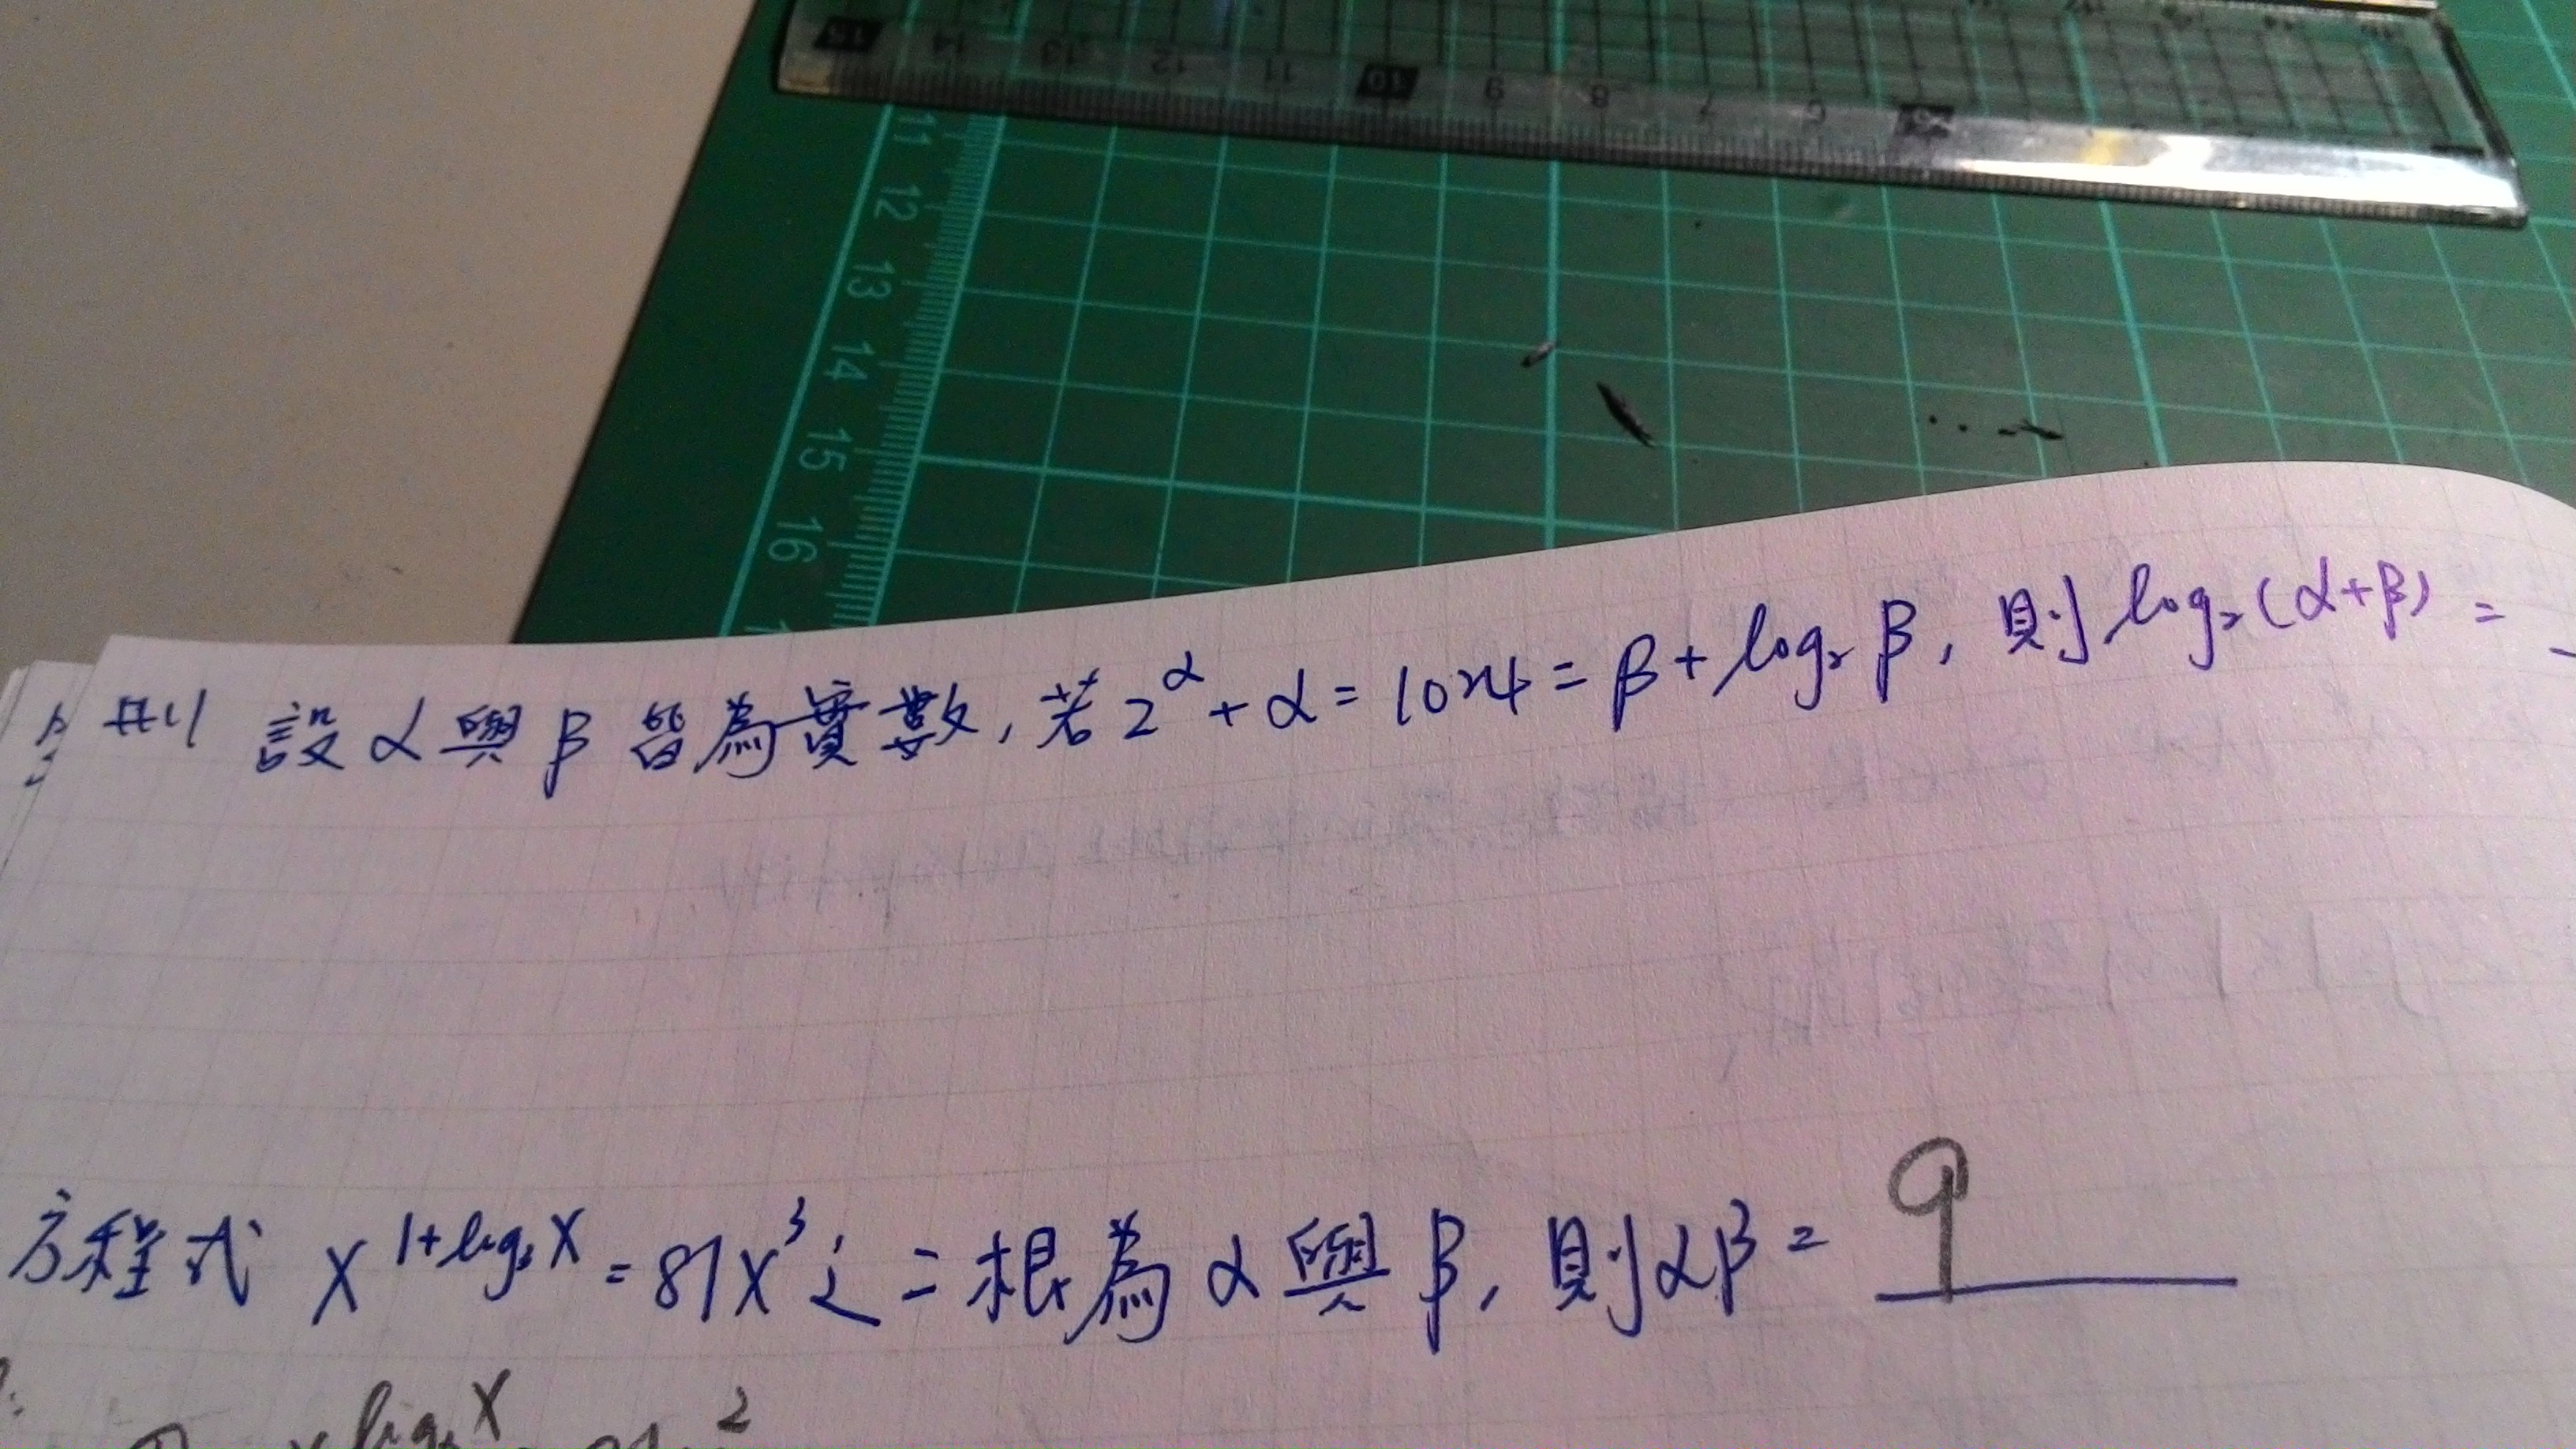 15 14 13 12 11 10 9 8 7 6
11
12
13
14
15
16
設α與β皆為實數,若2^α+α=1024=β+log₂β,則log₂(α+β)=
方程式 x^(1+log₃x)=81x³之二根為α與β,則αβ= 9